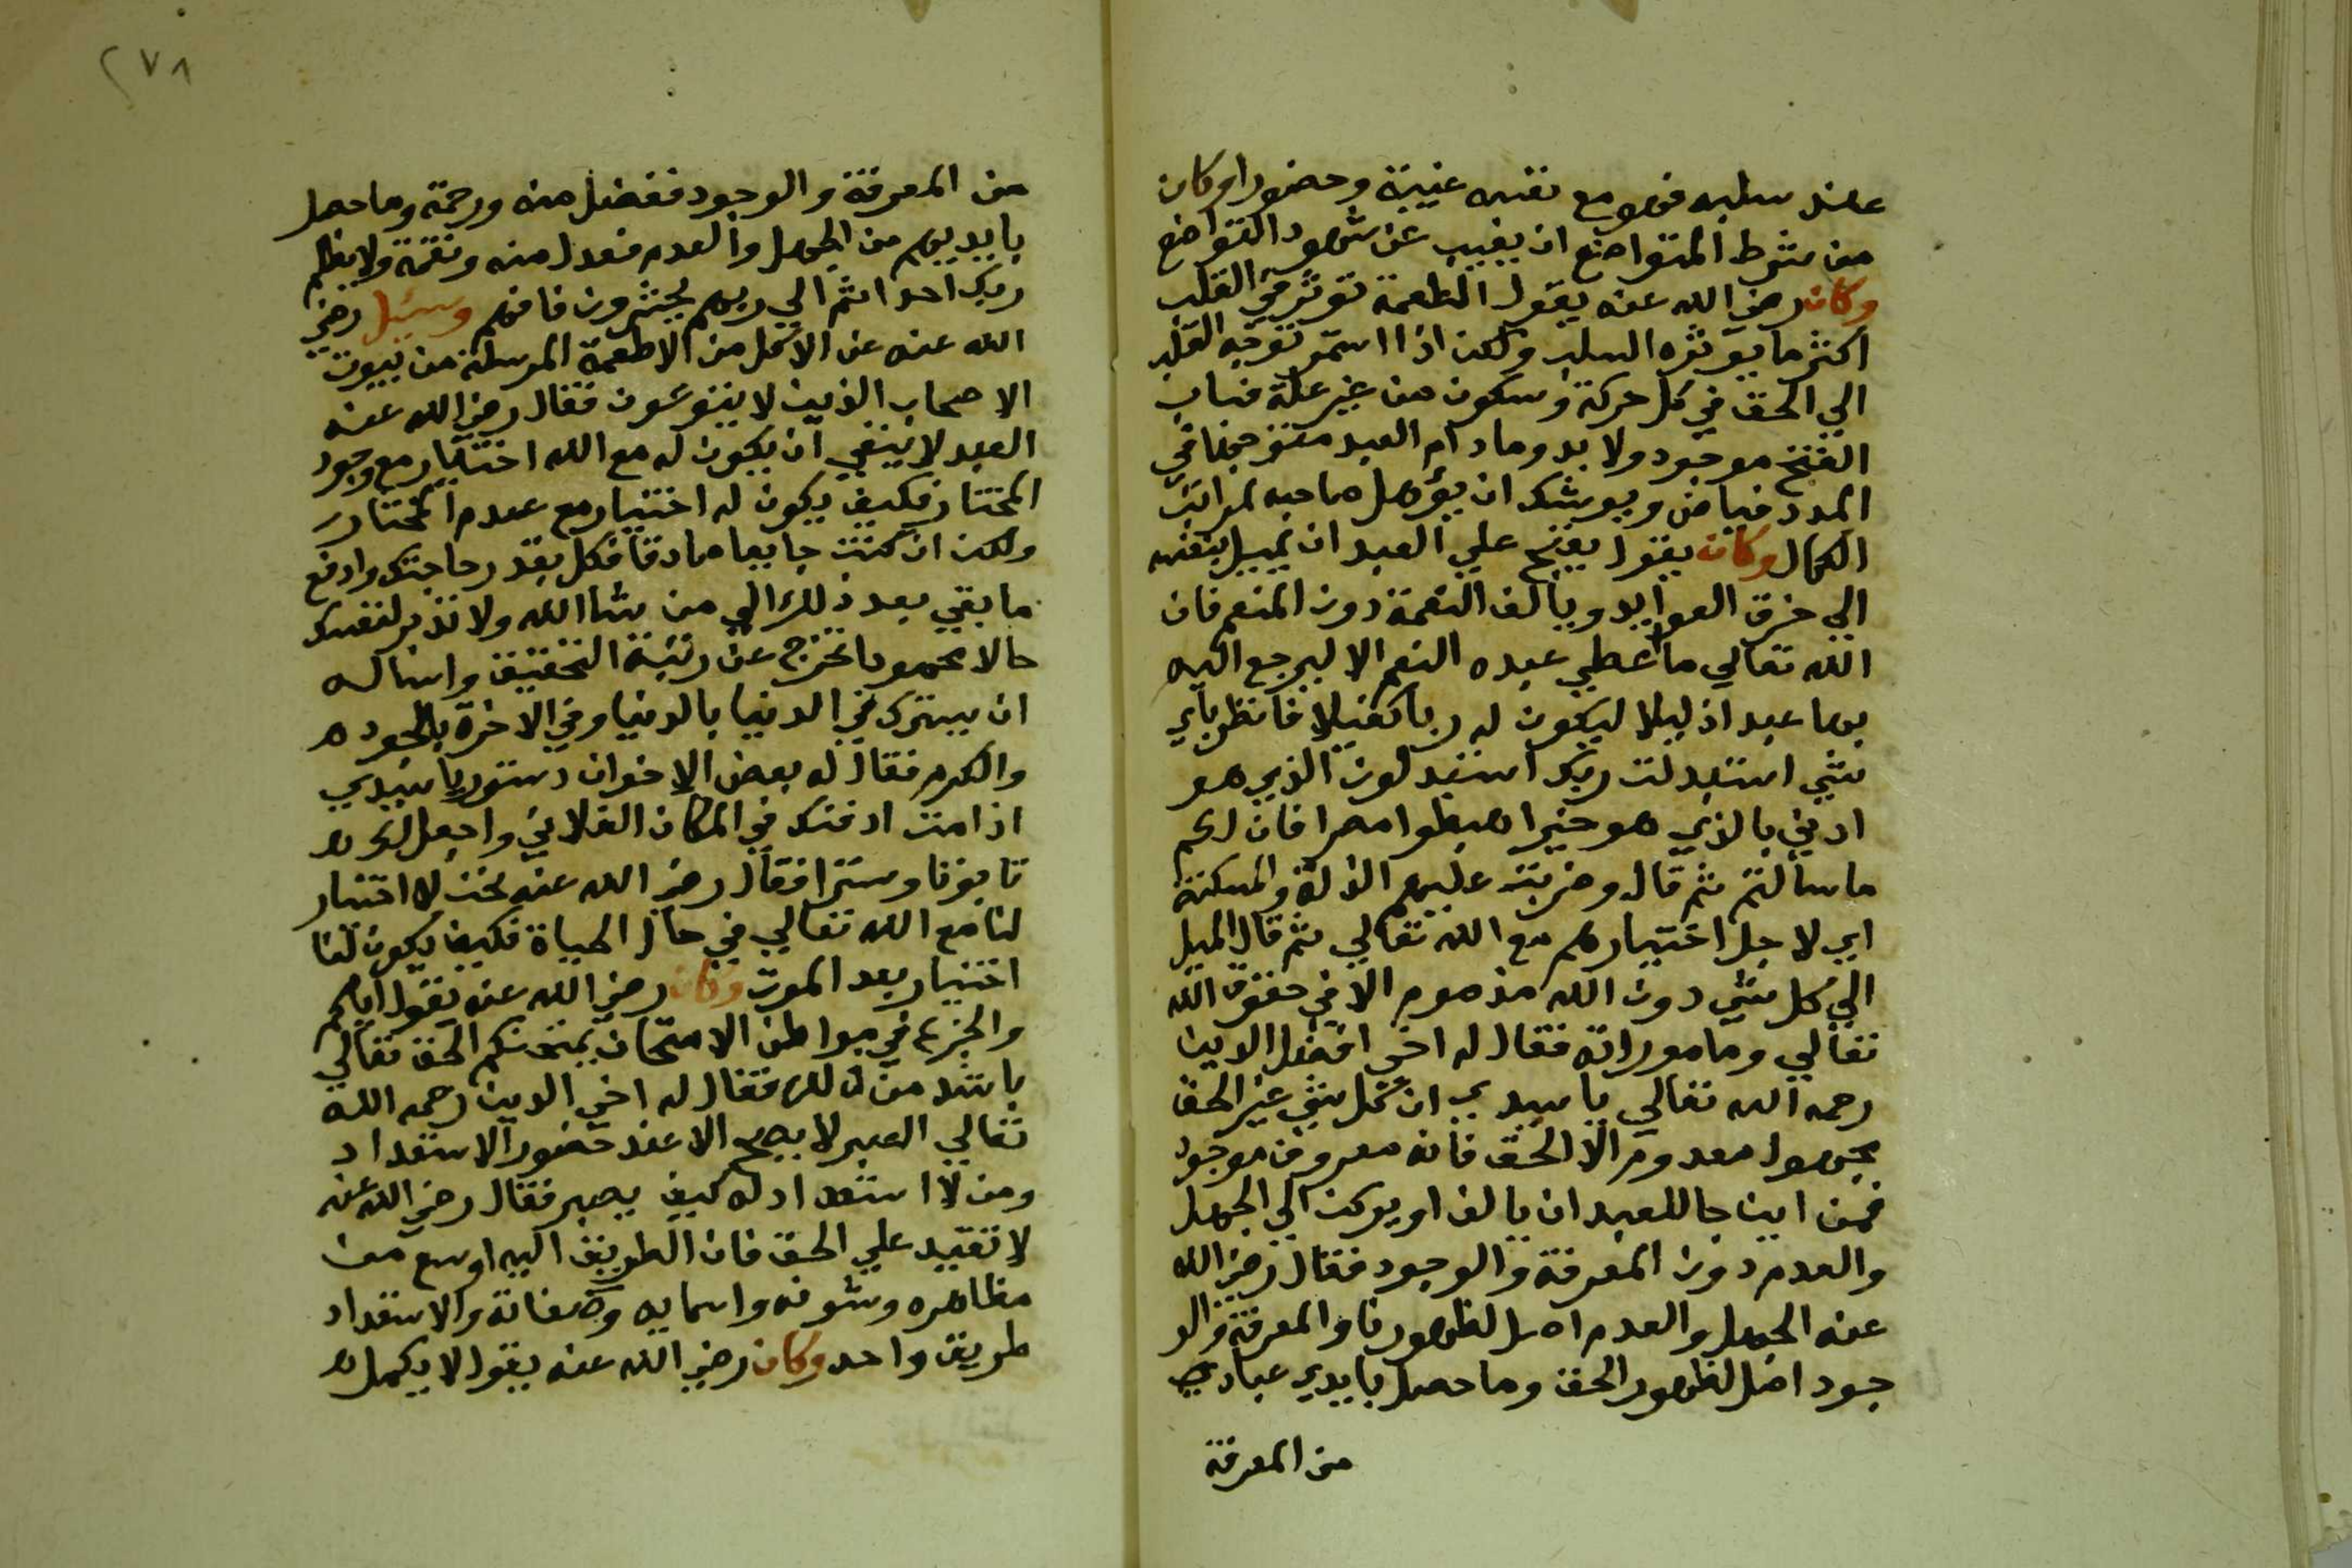 عند سلبه فهو مع نفسه غيبة وحضورا وكان
من شرط المتواضع ان يغيب عن شهود التواضع
وكان رضي الله عنه يقول الطعمة توثر في القلب
اكثر ما يوثره السلب ولكن اذا استمر توجه القلب
الي الحق في كل حركة وسكون من غير علة فباب
الفتح موجود ولا بد وما دام العبد متوجها في
المدد فياض ويوشك ان يؤهل صاحبه لمراتب
الكمال وكان يقول يقبح علي العبد ان يميل بنفسه
الي خرق العوايد ويألف النعمة دون المنعم فان
الله تعالي ما اعطي عبده النعم الا ليرجع اليه
بها عبدا ذليلا ليكون له ربا كفيلا فانظر باي
شي استبدلت ربك اتستبدلون الذي هو
ادني بالذي هو خير اهبطوا مصرا فان لكم
ما سالتم ثم قال وضربت عليهم الذلة والمسكنة
اي لاجل اختيارهم مع الله تعالي ثم قال الميل
الي كل شي دون الله مذموم الا في حقوق الله
تعالي وماموراته فقال له اخي افضل الدين
رحمه الله تعالي يا سيدي ان كل شي غير الحق
مجهول معدوم الا الحق فانه معروف موجود
فمن اين جا للعبد ان يالف او يركن الي الجهل
والعدم دون المعرفة والوجود فقال رضي الله
عنه الجهل والعدم اصل لظهورنا والمعرفة والو
جود اصل لظهور الحق وما حصل بايدي عبادي
من المعرفة
٢٧٨
من المعرفة والوجود ففضل منه ورحمة وما حصل
بايديهم من الجهل والعدم فعدل منه ونقمة ولا يظلم
ربك احدا ثم الي ربهم يحشرون فافهم وسئل رضي
الله عنه عن الاكل من الاطعمة المرسلة من بيوت
الاصحاب الذين لا يتورعون فقال رضي الله عنه
العبد لا ينبغي ان يكون له مع الله اختيار مع وجود
المختار فكيف يكون له اختيار مع عدم المختار
ولكن ان كنت جايعا صادقا فكل بقدر حاجتك وادفع
ما بقي بعد ذلك الي من شا الله ولا تدبر لنفسك
حالا محمودا تخرج عن رتبة التحقيق واساله
ان يسترك في الدنيا بالدنيا وفي الاخرة بالجود
والكرم فقال له بعض الاخوان دستور يا سيدي
اذا مت ادفنك في المكان الفلاني واجعل لك
تابوتا وسترا فقال رضي الله عنه نحن لا اختيار
لنا مع الله تعالي في حال الحياة فكيف يكون لنا
اختيار بعد الموت وكان رضي الله عنه يقول اياكم
والجزع في مواطن الامتحان يمتحنكم الحق تعالي
باشد من ذلك فقال له اخي الدين رحمه الله
تعالي الصبر لا يصح الا عند حضور الاستعداد
ومن لا استعداد له كيف يصبر فقال رضي الله عنه
لا تقيد علي الحق فان الطريق اليه اوسع من
مظاهره وشونه واسمايه وصفاته والاستعداد
طريق واحد وكان رضي الله عنه يقول لا يكمل